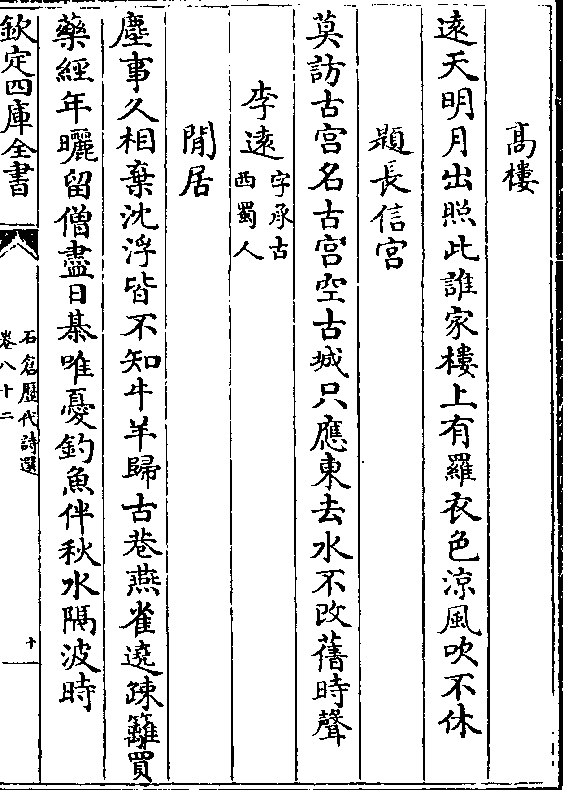 高樓
遠天明月出照此誰家樓上有羅衣色涼風吹不休
題長信宮
莫訪古宮名古宮空古城只應東去水不改舊時聲
李遠字承古西蜀人
閒居
塵事久相棄沈浮皆不知牛羊歸古巷燕雀遶疎籬買
藥經年曬留僧盡日棊唯憂釣魚伴秋水隔波時
欽定四庫全書
石倉歷代詩選
卷八十二
十